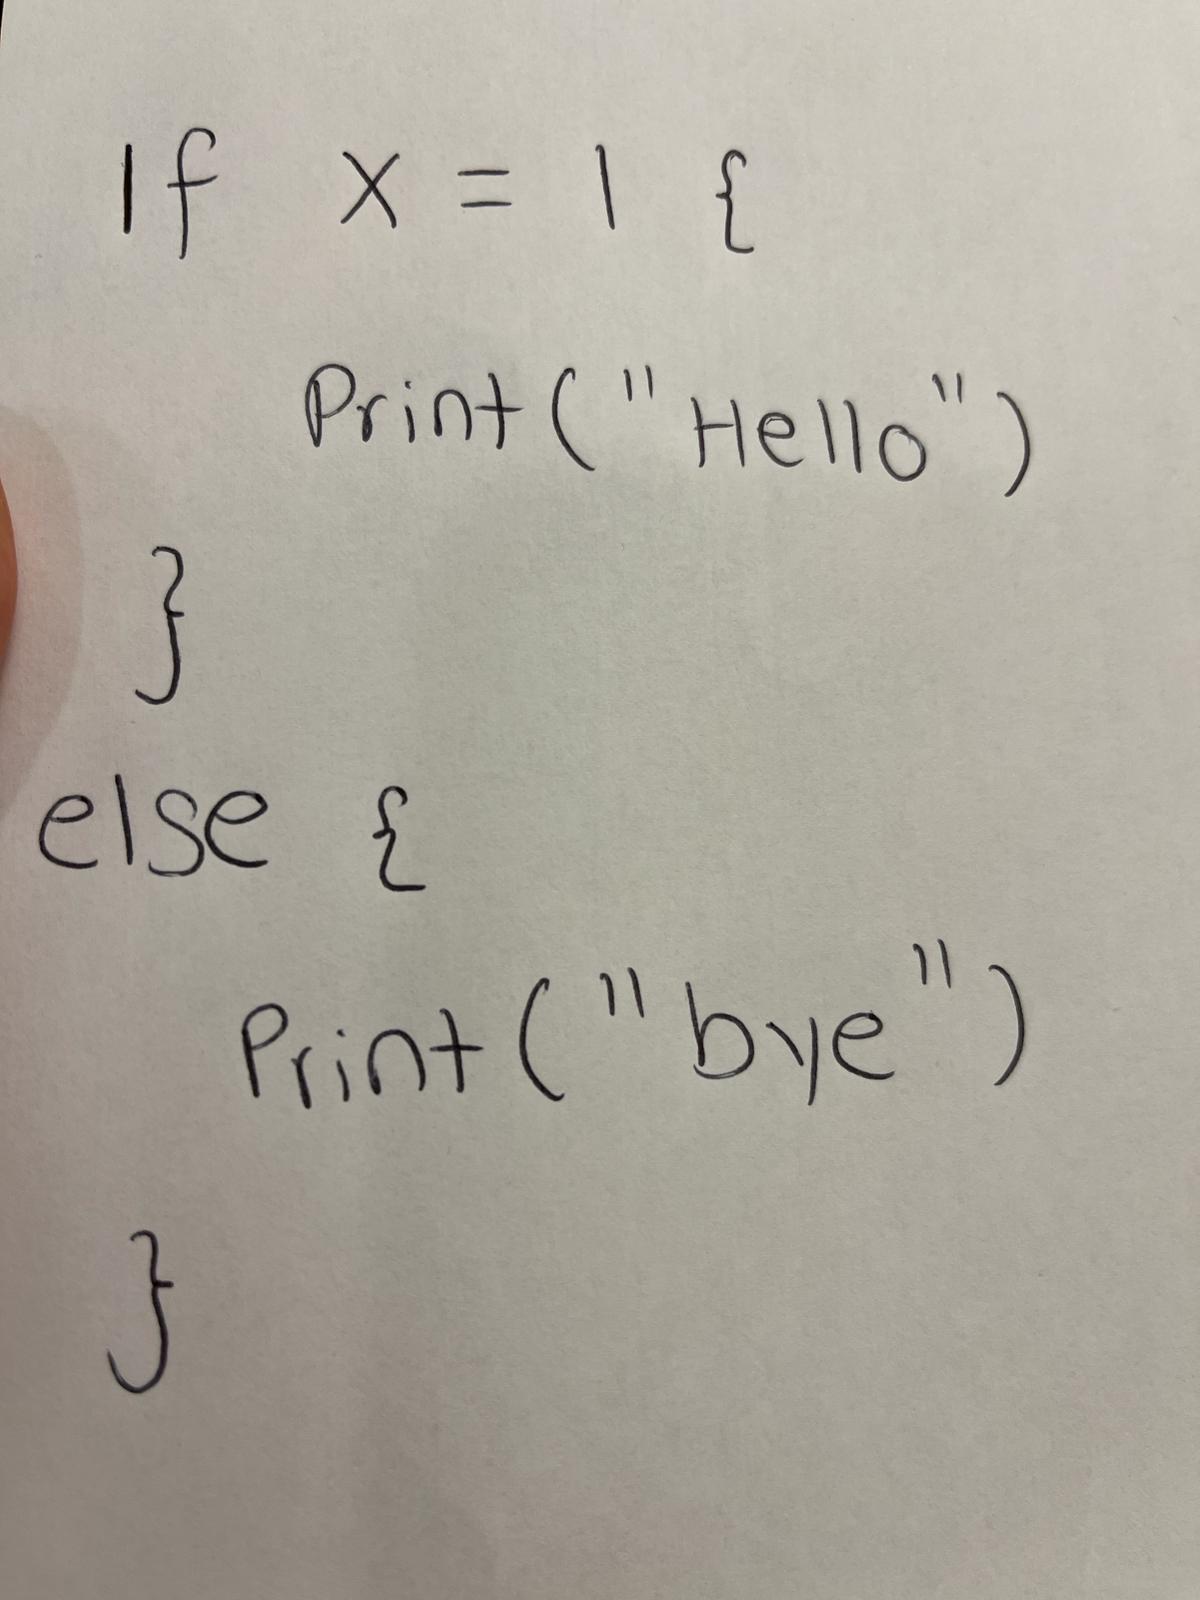 If x = 1 {
Print("Hello")
}
else {
Print("bye")
}